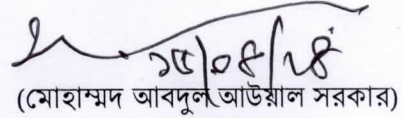 ১৫/০৪/২৪
(মোহাম্মদ আবদুল আউয়াল সরকার)